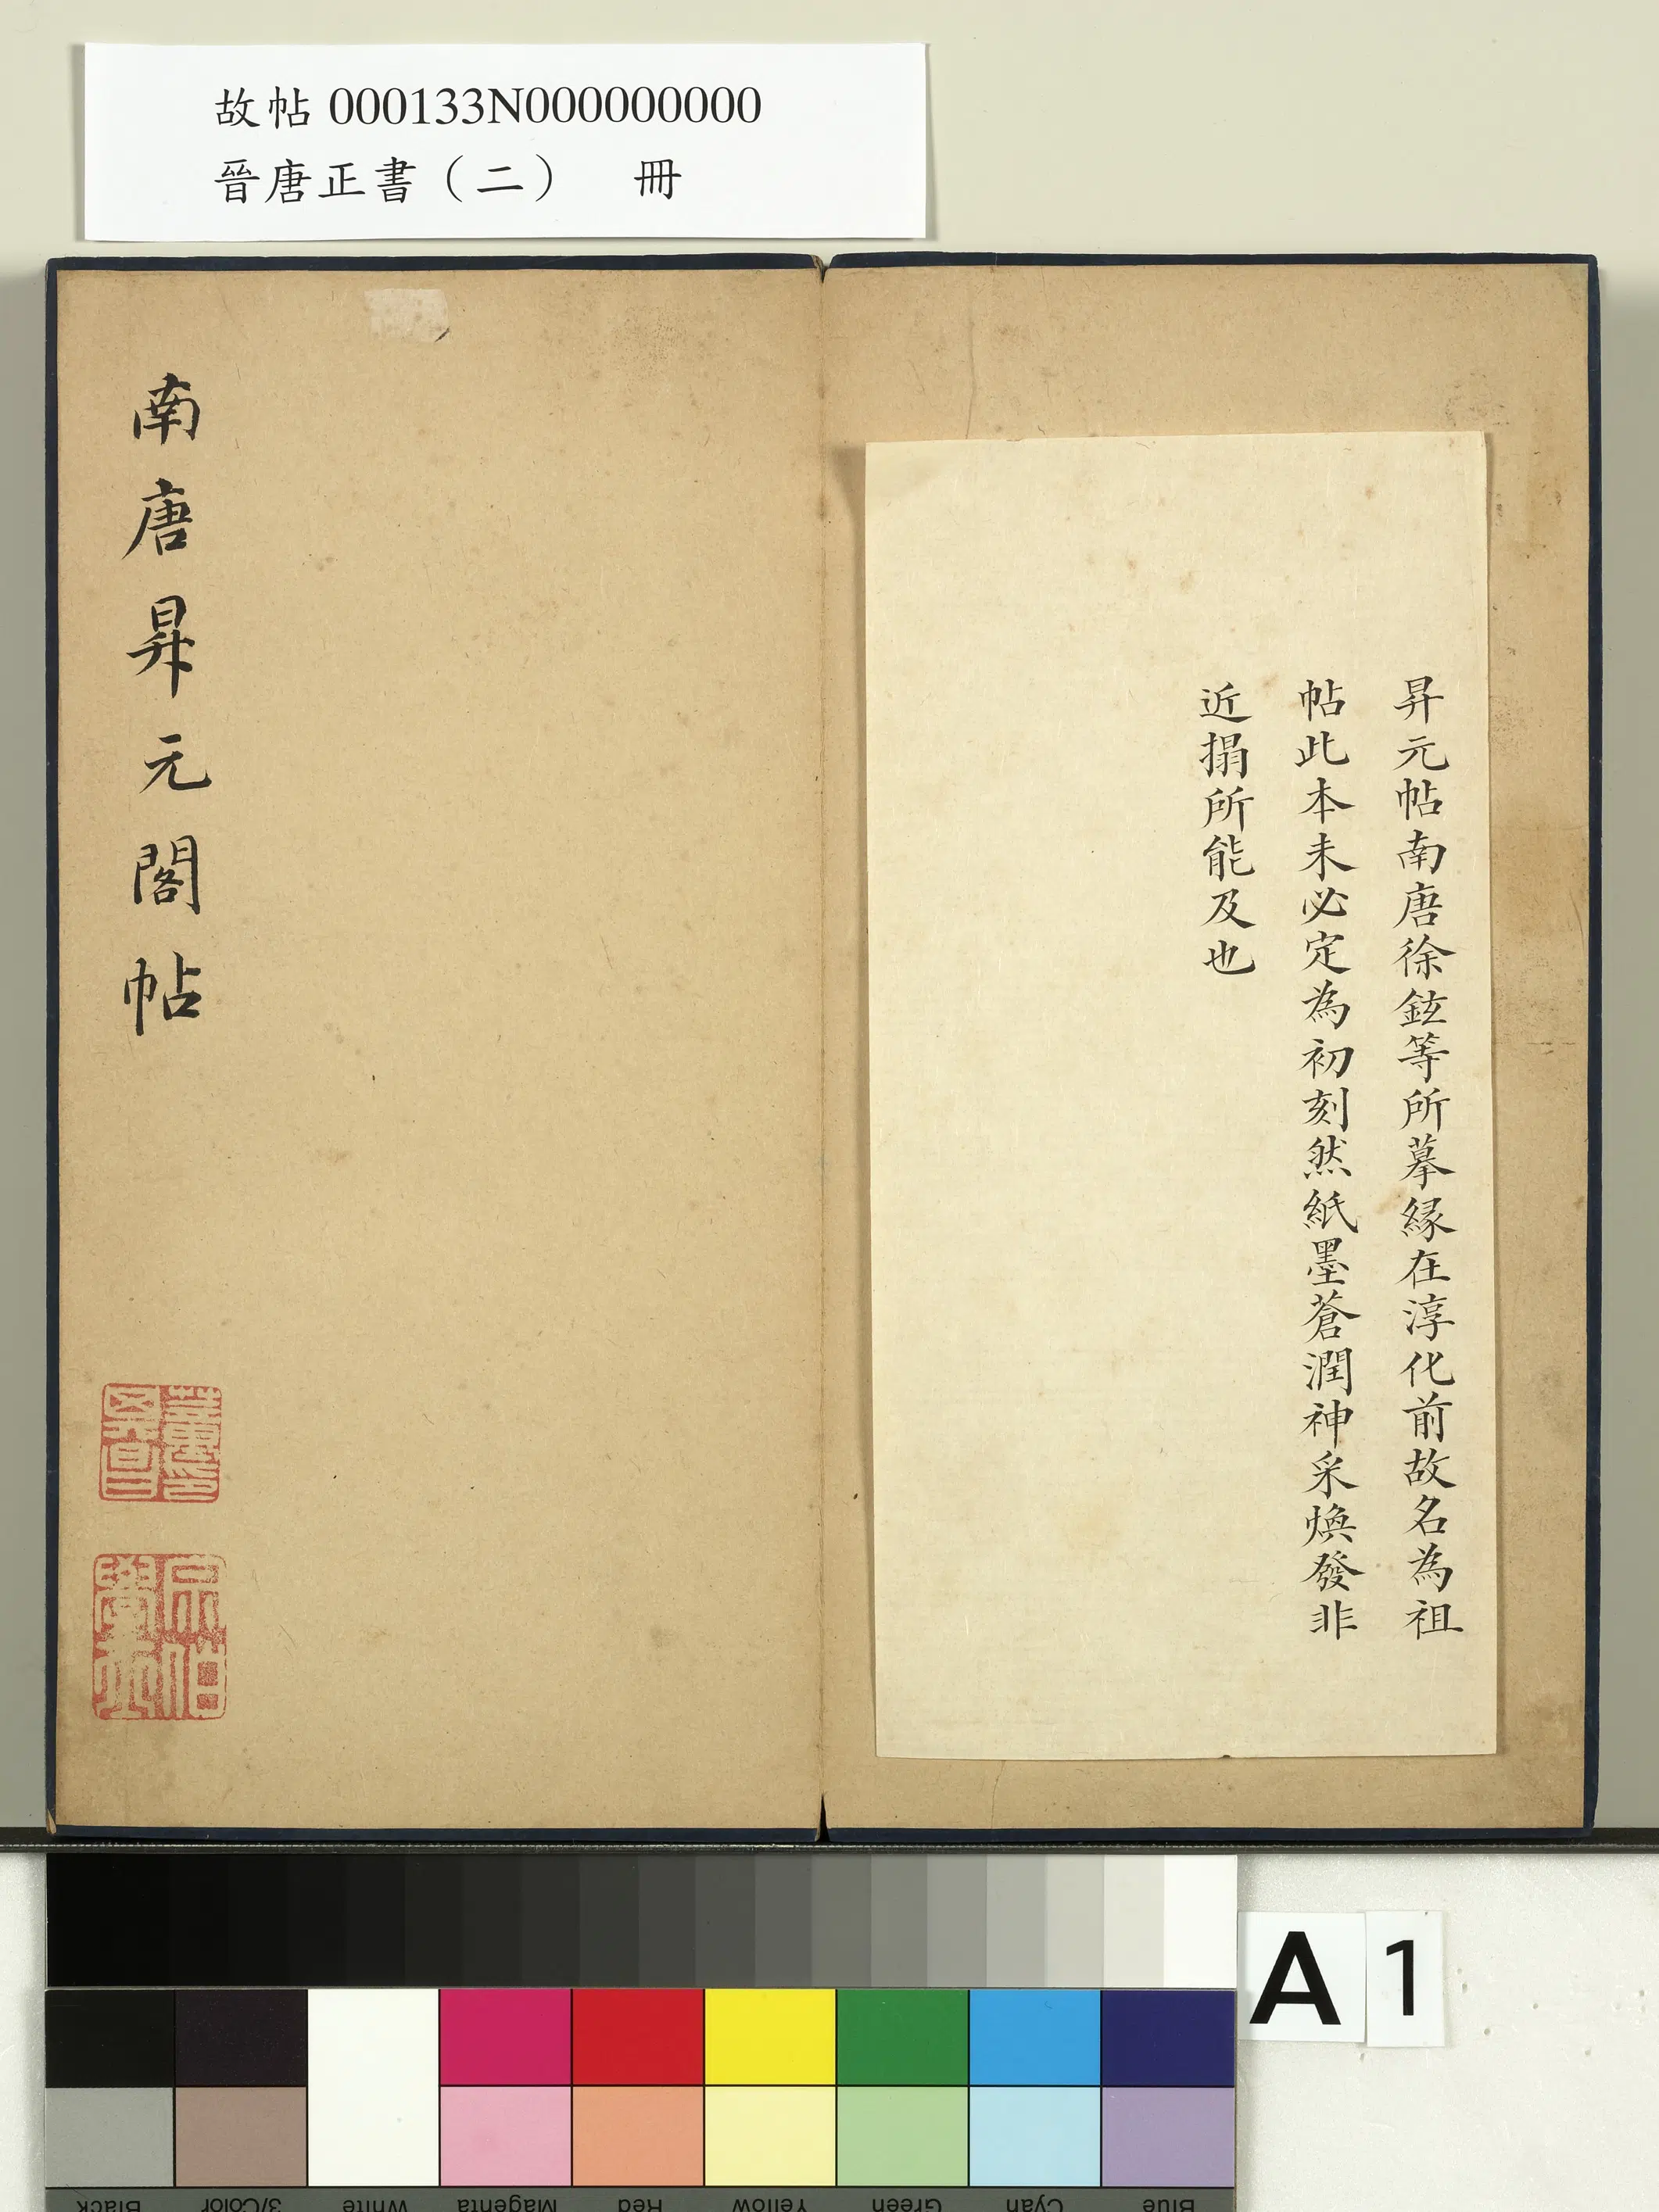 故帖 000133N000000000
晉唐正書（二） 冊
昇元帖南唐徐鉉等所摹縁在淳化前故名為祖
帖此本未必定為初刻然紙墨蒼潤神采煥發非
近搨所能及也
南唐昇元閣帖
A 1
Black 3/Color White Magenta Red Yellow Green Cyan Blue